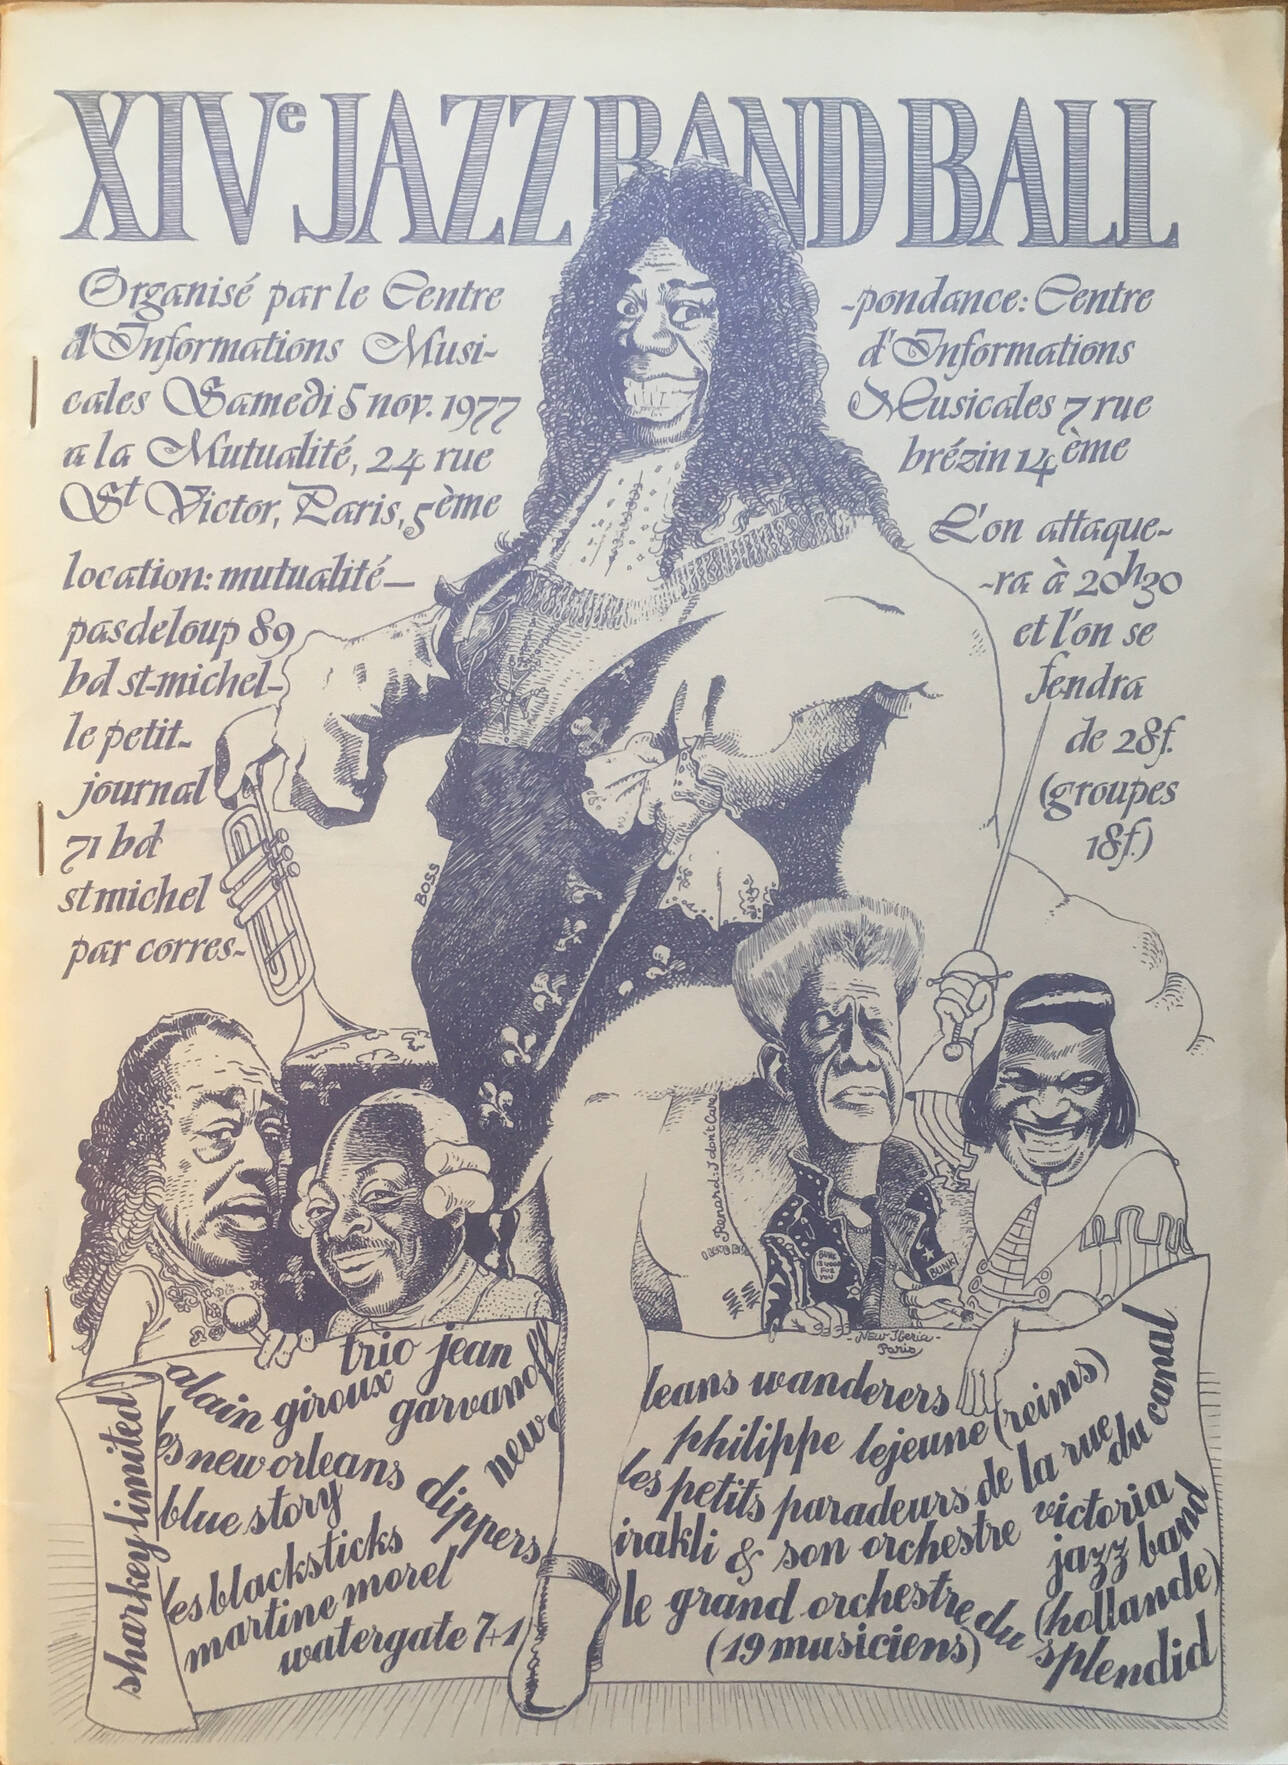 XIVe JAZZ BAND BALL
Organisé par le Centre
d'Informations Musi-
cales Samedi 5 nov. 1977
a la Mutualité, 24 rue
St Victor, Paris, 5ème
location: mutualité—
pasdeloup 89
bd st-michel-
le petit-
journal
71 bd
st michel
par corres-
-pondance: Centre
d'Informations
Musicales 7 rue
brézin 14ème
L'on attaque-
-ra à 20h30
et l'on se
fendra
de 28f.
(groupes
18f.)
BOSS
Renard: I don't Care
BUNK
IS GOOD
FOR
YOU
BUNK
-New Iberia-
Paris
sharkey limited
alain giroux
trio jean
garvanoff
les new orleans
dippers
new
blue story
les blacksticks
martine morel
watergate 7+1
leans wanderers
philippe lejeune (reims)
les petits paradeurs de la rue
du canal
irakli & son orchestre
victoria
jazz band
(hollande)
le grand orchestre du
splendid
(19 musiciens)